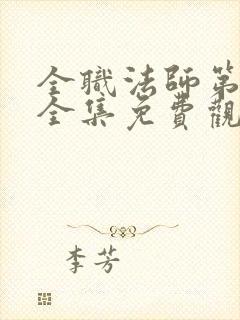 全職法師第
全集免費觀
李芳